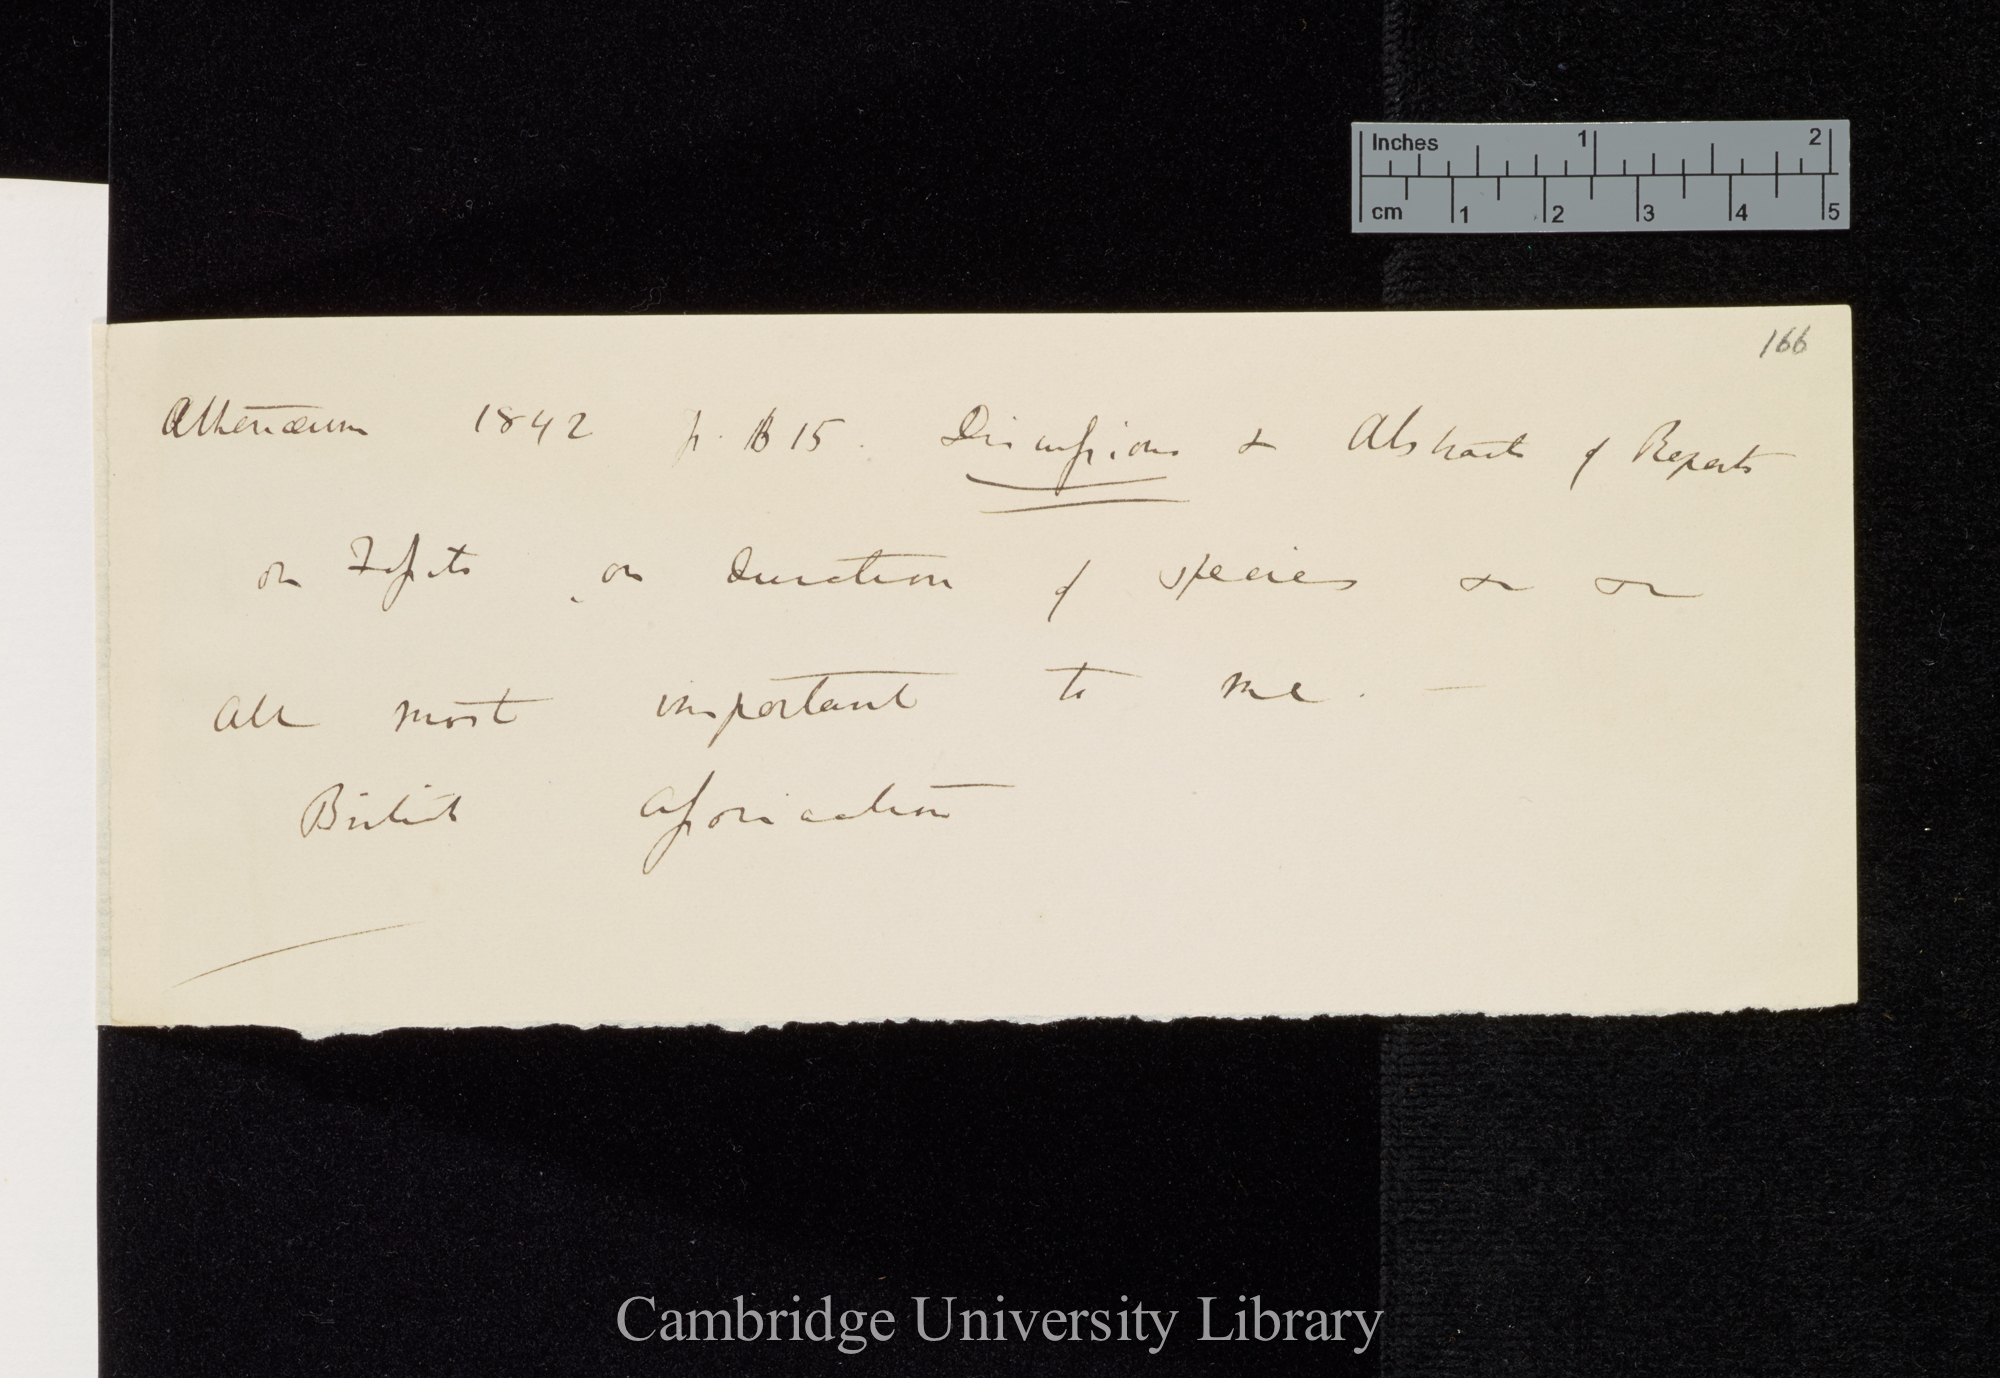 166
Athenæum 1842 p. 815. Discussions & Abstracts of Reports
on Fossils on duration of species &c &c
All most important to me. —
British Association
Inches 1 2
cm 1 2 3 4 5
Cambridge University Library